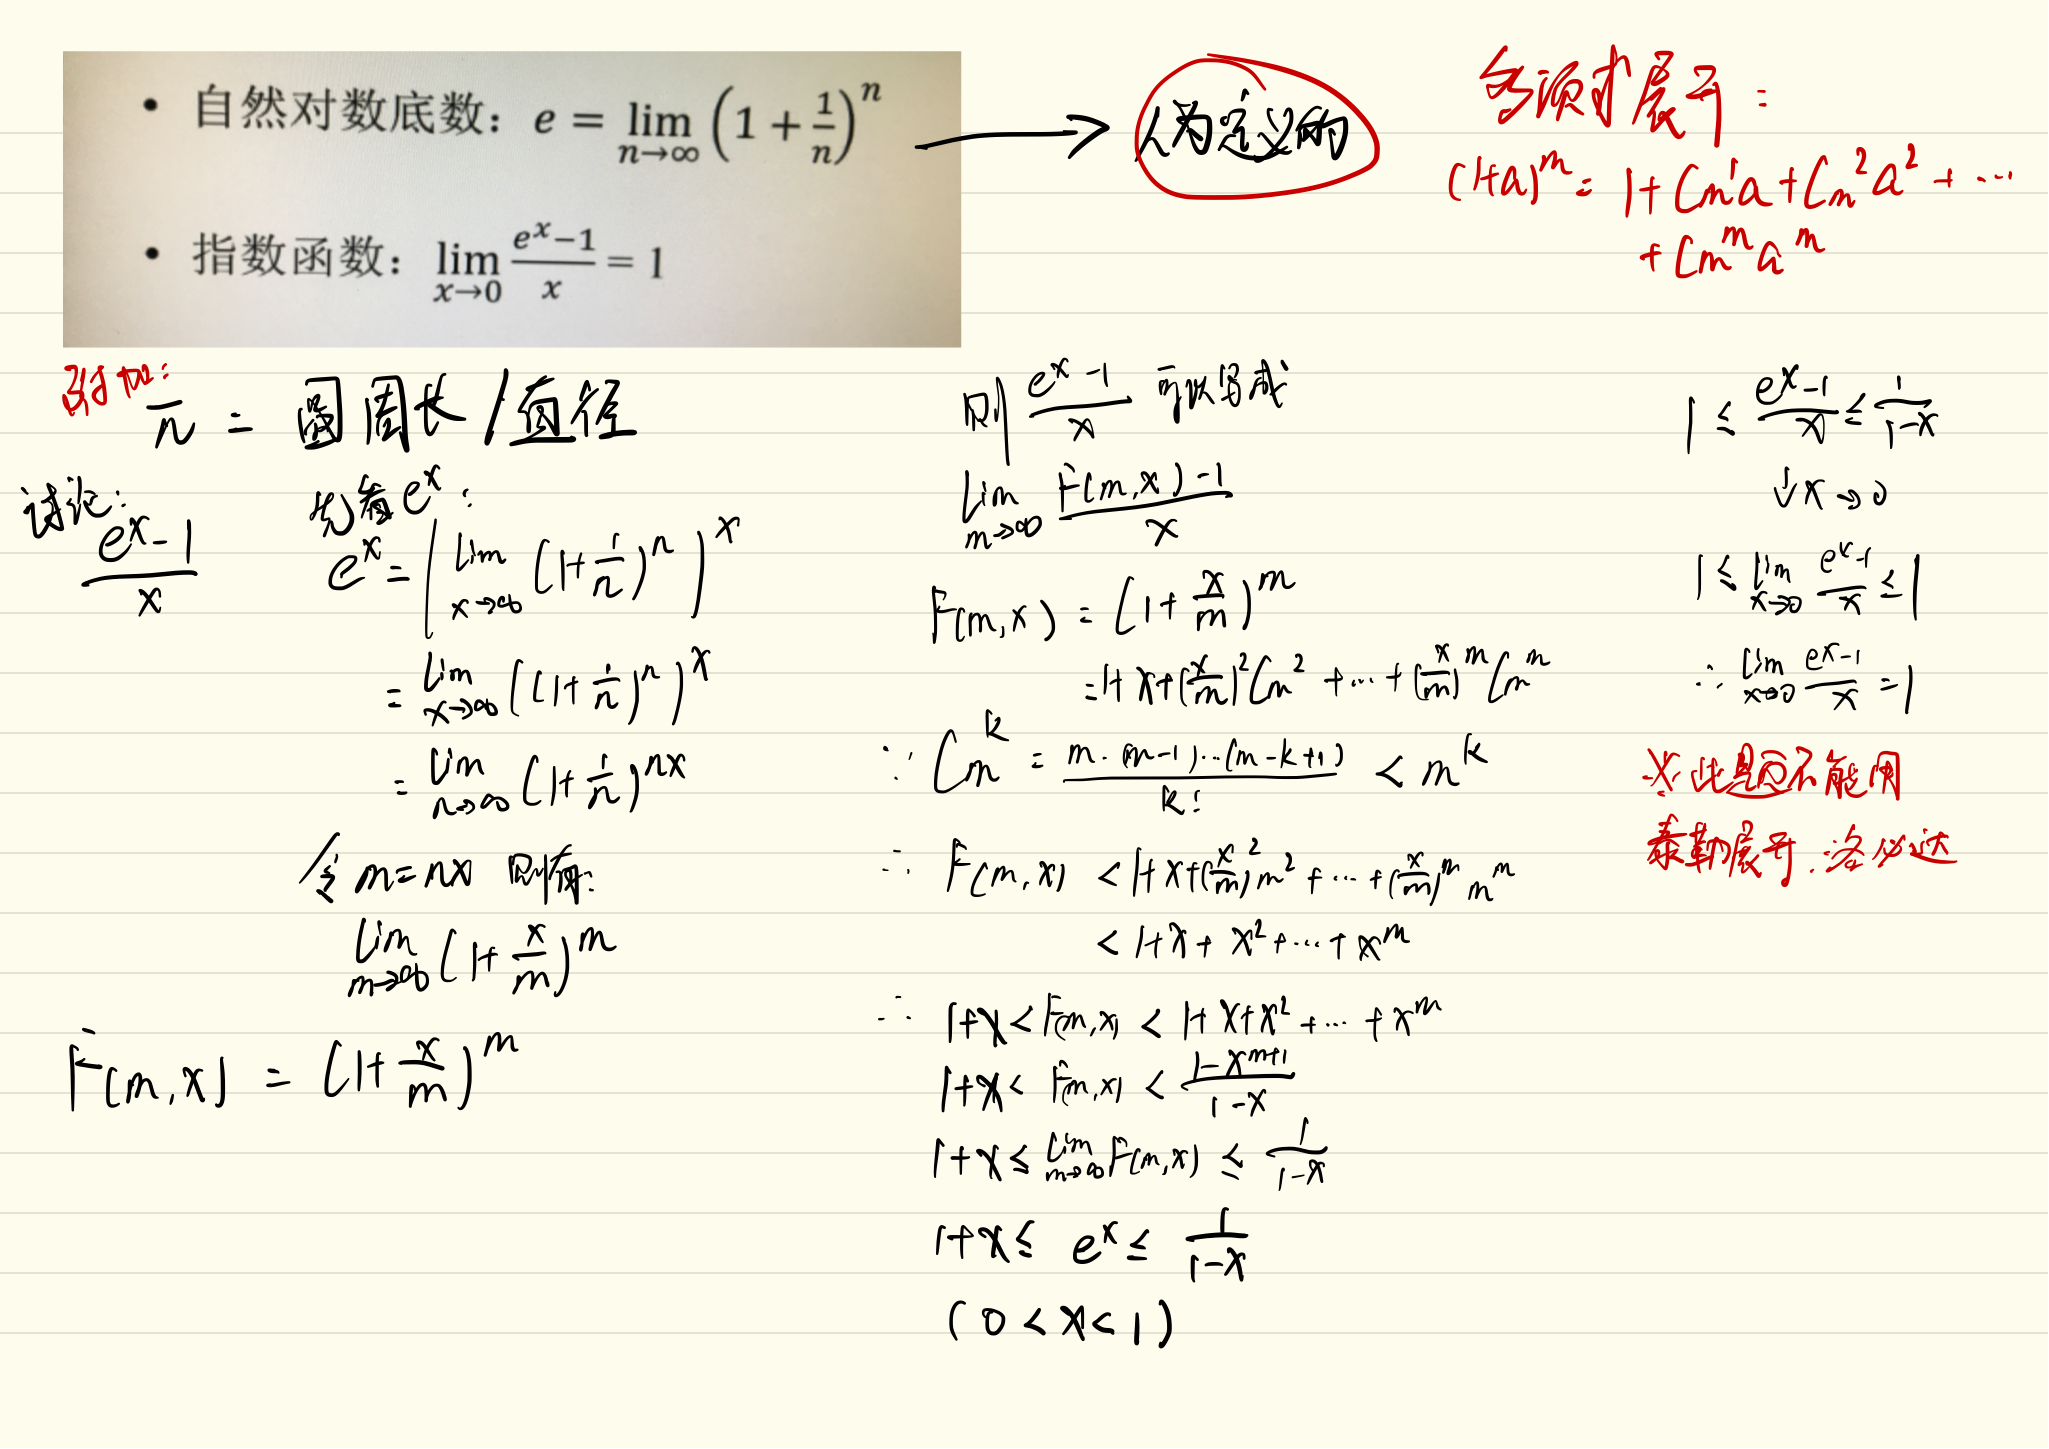 • 自然对数底数：e = lim n→∞ (1 + 1/n)^n
• 指数函数：lim x→0 (e^x−1)/x = 1
人为定义的
多项式展开：
(1+a)^m = 1 + C_m^1 a + C_m^2 a^2 + ⋯
+ C_m^m a^m
附加：
π = 圆周长/直径
讨论：
(e^x − 1)/x
先看 e^x：
e^x = (lim x→∞ (1+1/n)^n)^x
= lim x→∞ ((1+1/n)^n)^x
= lim n→∞ (1+1/n)^{nx}
令 m=nx 则有：
lim m→∞ (1+x/m)^m
F(m,x) = (1+x/m)^m
则 (e^x − 1)/x 可以写成
lim m→∞ (F(m,x) − 1)/x
F(m,x) = (1+x/m)^m
= 1+x+(x/m)^2 C_m^2 +⋯+(x/m)^m C_m^m
∵ C_m^k = m·(m−1)⋯(m−k+1)/k! < m^k
∴ F(m,x) < 1+x+(x/m)^2 m^2 +⋯+(x/m)^m m^m
< 1+x+x^2+⋯+x^m
∴ 1+x < F(m,x) < 1+x+x^2+⋯+x^m
1+x < F(m,x) < (1−x^{m+1})/(1−x)
1+x ≤ lim m→∞ F(m,x) ≤ 1/(1−x)
1+x ≤ e^x ≤ 1/(1−x)
(0 < x < 1)
1 ≤ (e^x−1)/x ≤ 1/(1−x)
↓ x→0
1 ≤ lim x→0 (e^x−1)/x ≤ 1
∴ lim x→0 (e^x−1)/x = 1
※此题不能用
泰勒展开.洛必达